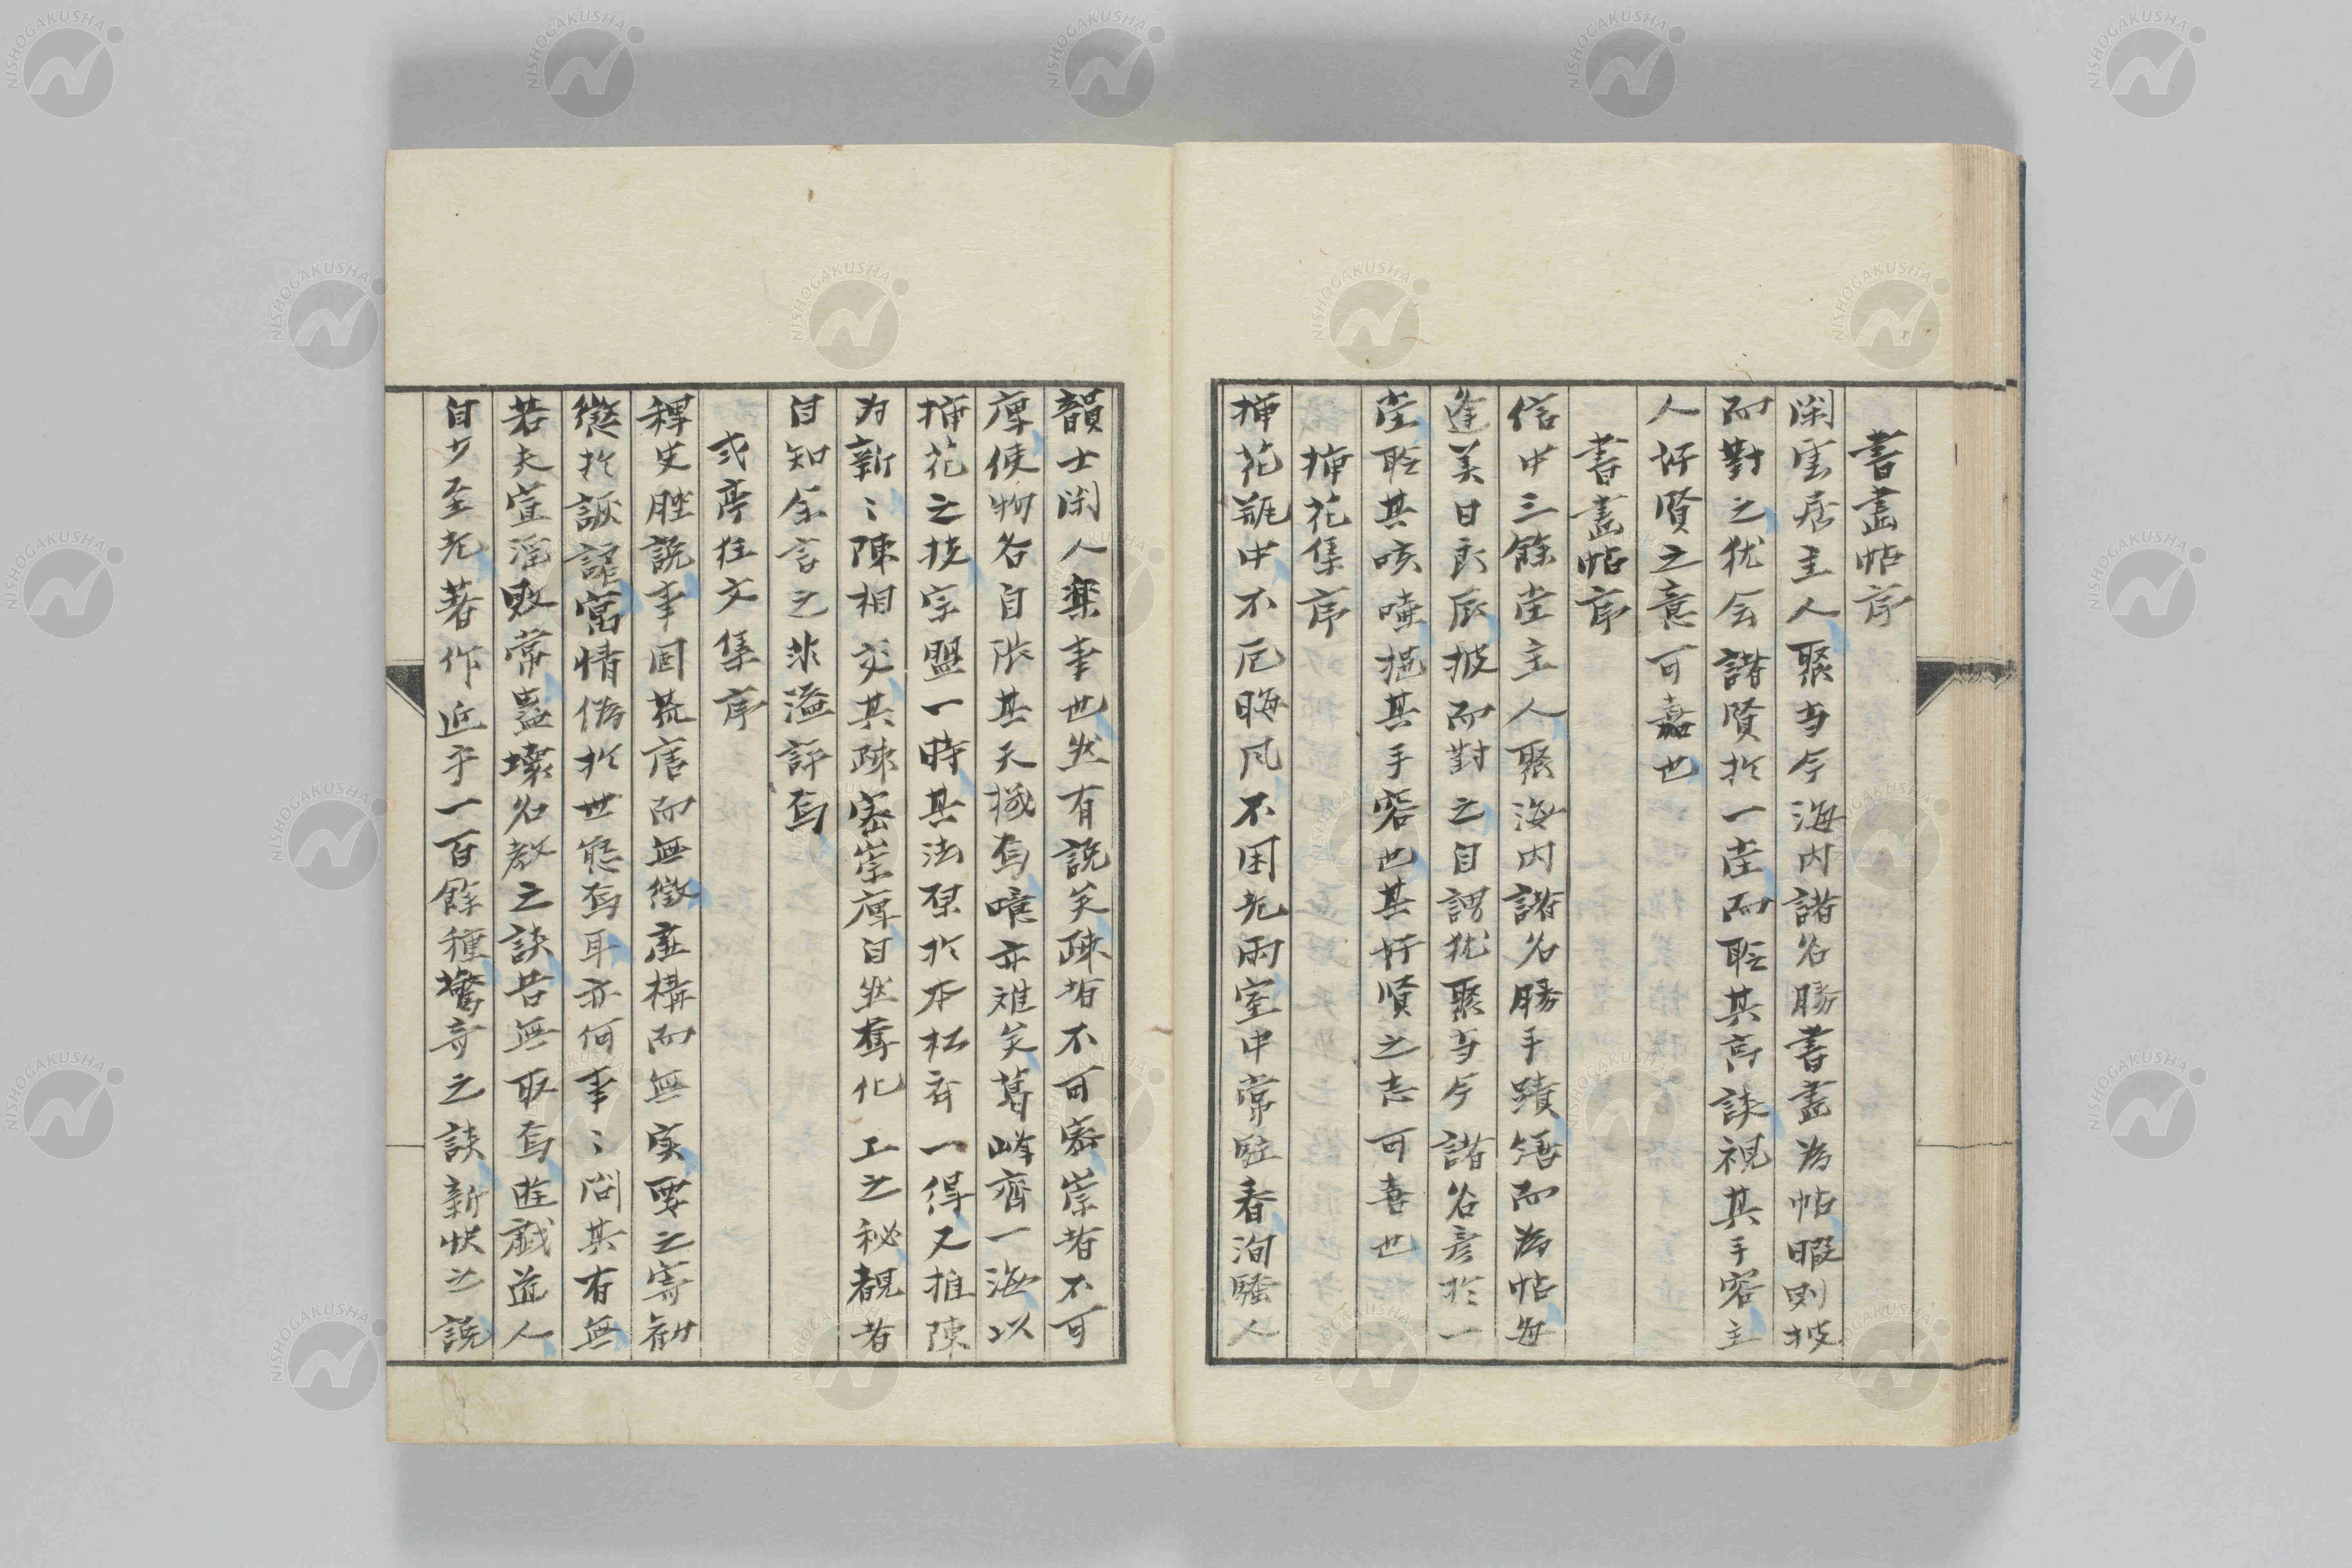 書畫帖序
閑雲居主人聚当今海内諸名勝書畫為帖暇則披
而對之犹会諸賢於一堂而聆其高談視其手容主
人好賢之意可嘉也
書畫帖序
信中三餘堂主人聚海内諸名勝手蹟 而為帖每
逢美日良辰披而對之自謂犹聚当今諸名彦於一
堂聆其咳唾挹其手容也其好賢之志可喜也
挿花集序
挿花瓶中不厄晦风不困 雨室中常駐春洵騷人
韻士閑人楽事也然有説矣疎者不可密崇者不可
庳使物各自 其天機焉噫亦难矣葛峰齊一海以
挿花之技宗盟一時其法原於本松斉一得又推陳
为新〻陳相交其疎密崇庳自然奪化工之秘覩者
自知余言之非溢評焉
弍亭狂文集序
稗史脞説事固荒唐而無徴虚構而無実要之寄勧
懲於詼謔寓情偽於世態焉耳亦何事〻問其有無
若夫宣淫敗常蠱壊名教之談吾無取焉遊戯道人
自少至老著作近乎一百餘種驚奇之談新快之説
NISHOGAKUSHA